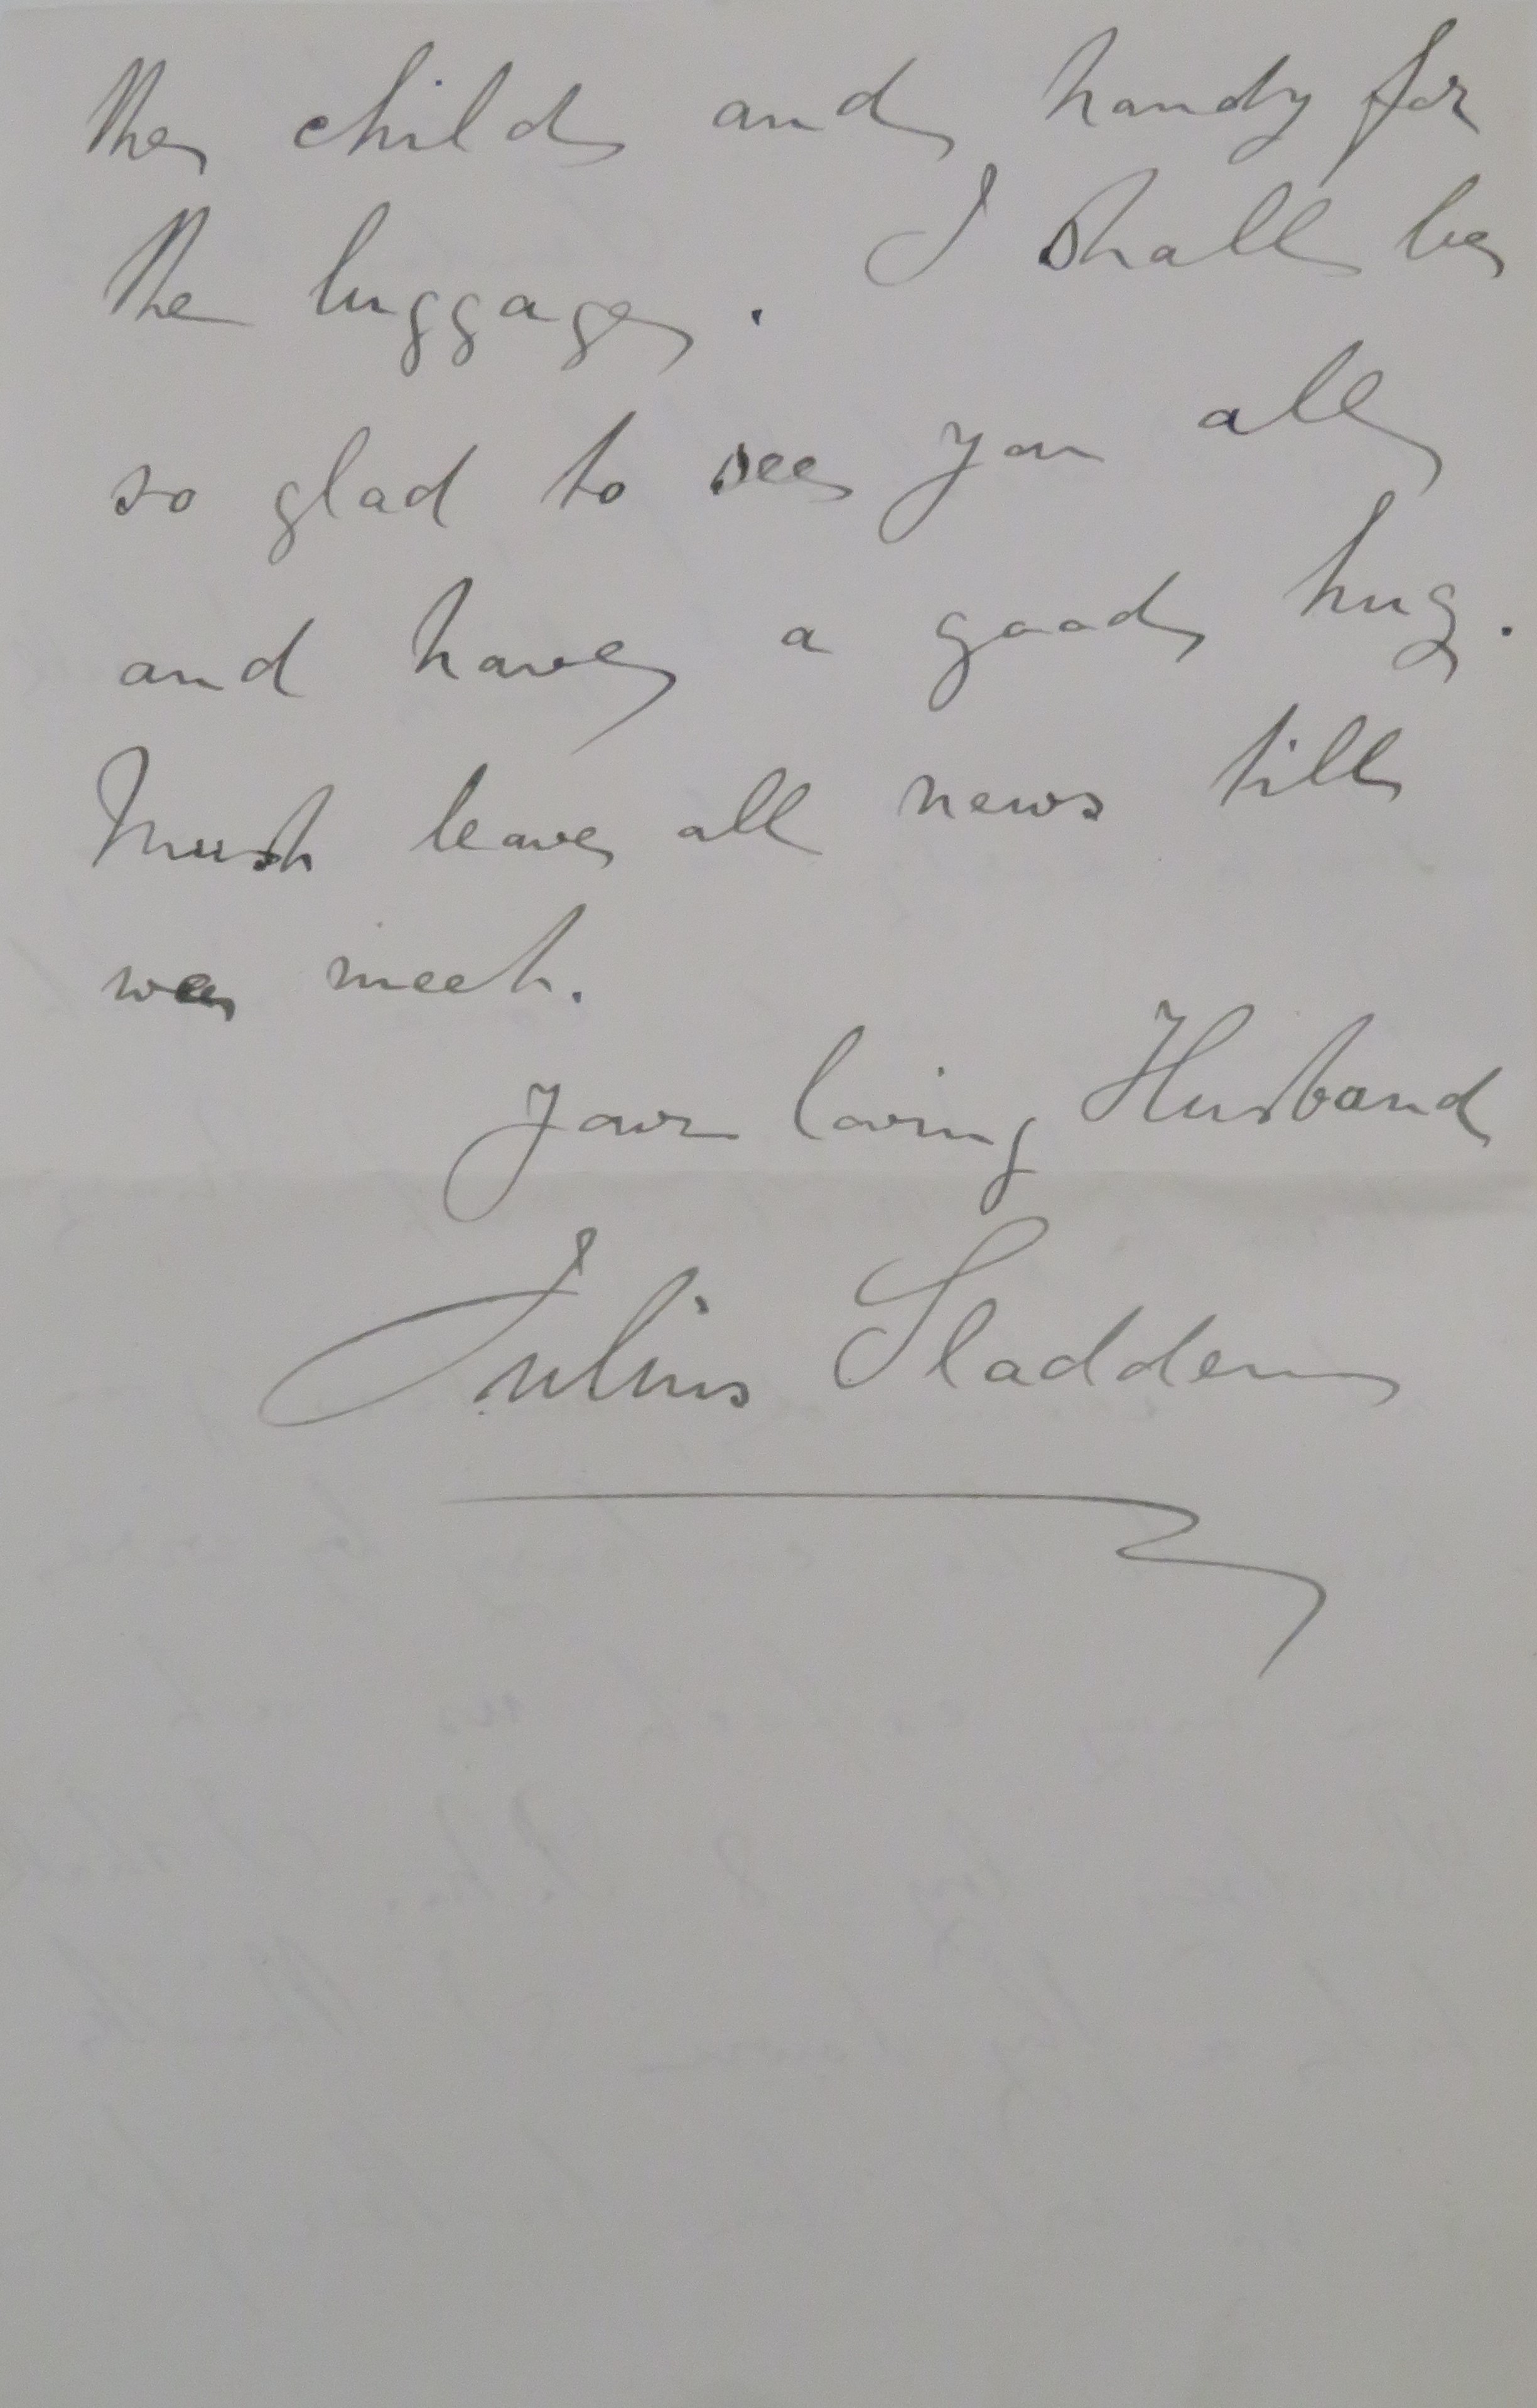 the child and handy for
the luggage. I shall be
so glad to see you all
and have a good hug.
Must leave all news till
we meet.
Your loving Husband
Julius Sladden